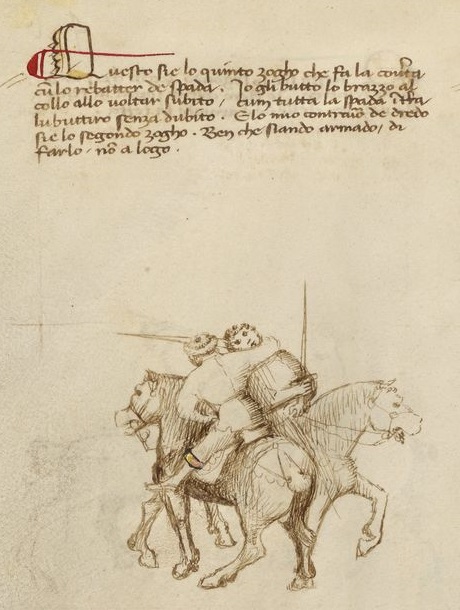 Questo sie lo quinto zogho che fa la cov̄ta
cū lo rebatter de spada. Io gli butto lo brazzo al
collo allo voltar subito, cum tutta la spada
lu buttiro senza dubito. E lo mio contrario de dredo
sie lo segondo zogho. Ben che stando armado, di
farlo, nō a logo.